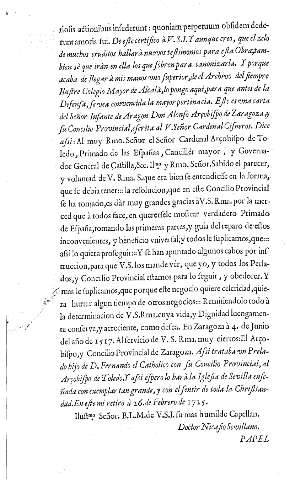 siosis actionibus insederunt: quoniam perpetuum obsidem dede-
runt amoris sui. De este certifico à V.S.I. Y aunque creo, que el zelo
de muchos eruditos hallarà nuevos testimonios para esta Obra, tam-
bien sè que iràn en ella los que sobren para canonizarla. Y porque
acaba de llegar à mis manos uno superior, de el Archivo del siempre
Ilustre Colegio Mayor de Alcalà, lo pongo aqui, para que antes de la
Defensa, se vea convencida la mayor pertinacia. Es esta carta
del Señor Infante de Aragon Don Alonso Arçobispo de Zaragoça y
su Concilio Provincial, escrita al V. Señor Cardenal Cisneros. Dice
assi: Al muy Rmo. Señor el Señor Cardenal Arçobispo de To-
ledo, Primado de las Españas, Canciller mayor, y Governa-
dor General de Castilla, &c. Illmo y Rmo. Señor. Sabido el parecer,
y voluntad de V. Rma. S. que era bien se entendiesse en la forma,
que se debia tener à la resolucion, que en este Concilio Provincial
se ha tomado, es dàr muy grandes gracias à V. S. Rma. por la mer-
ced que à todos face, en quererse mostrar verdadero Primado
de España, tomando las primeras partes, y guia del reparo de estos
inconvenientes, y beneficio universal, y todos le suplicamos, que
assi lo quiera proseguir: Y se han apuntado algunos cabos por ins-
truccion, para que V. S. los mande vèr, que yo, y todos los Prela-
dos, y Concilio Provincial estamos para lo seguir, y obedecer. Y
mas le suplicamos, que porque este negocio quiere celeridad, quie-
ra hurtar algun tiempo de otros negocios: Remitiendolo todo à
la determinacion de V. S. Rma. cuya vida, y Dignidad luengamen-
te conserve, y acreciente, como desea. En Zaragoza à 4. de Junio
del año de 1517. Al servicio de V. S. Rma. muy ciertos: El Arço-
bispo, y Concilio Provincial de Zaragoza. Assi trataba un Prela-
do hijo de D. Fernando el Catholico con su Concilio Provincial, al
Arçobispo de Toledo. Y assi espero lo harà la Iglesia de Sevilla ense-
ñada con exemplar tan grande, y con el sentir de toda la Christian-
dad. En este mi retiro à 26. de Febrero de 1725.
Illustmo Señor. B.L.M. de V.S.I. su mas humilde Capellan.
Doctor Nicasio Sevillano.
PAPEL